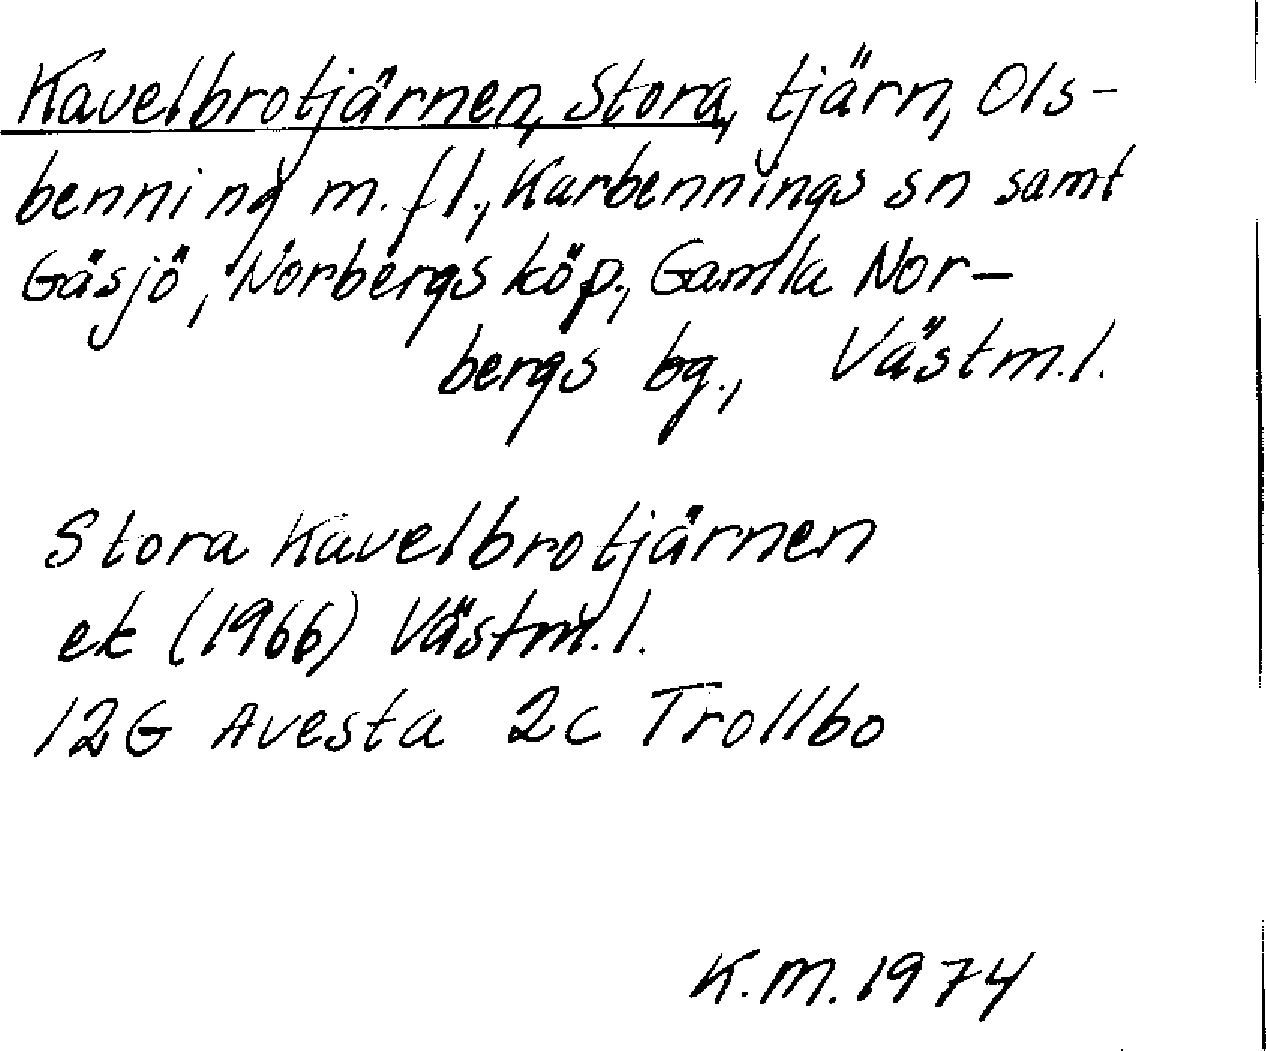 Kavelbrotjärnen, Stora, tjärn, Ols-
benning m.fl., Karbennings sn samt
Gäsjö, Norbergs köp., Gamla Nor-
bergs bg., Västm.l.
Stora Kavelbrotjärnen
ek (1966) Västm.l.
12G Avesta 2c Trollbo
K.M. 1974